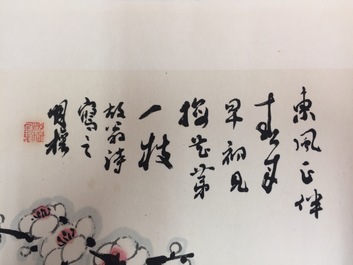 東風正伴
春來
早初見
梅花第
一枝
放翁詩
寫之